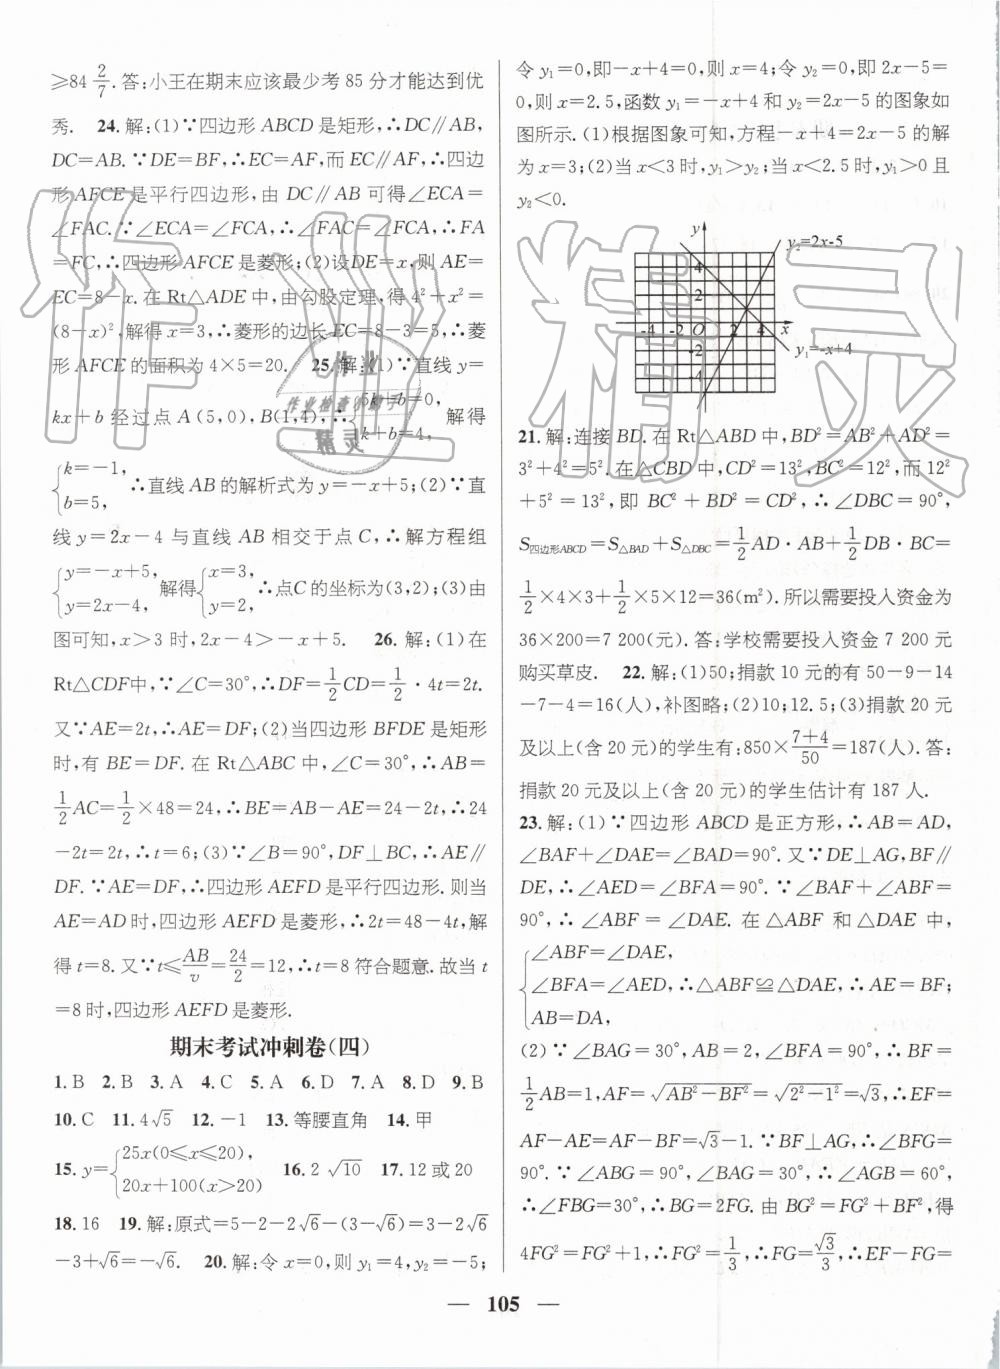 ≥84 2/7. 答:小王在期末应该最少考 85 分才能达到优
秀. 24. 解:(1)∵四边形 ABCD 是矩形,∴DC∥AB,
DC=AB.∵DE=BF,∴EC=AF,而 EC∥AF,∴四边
形 AFCE 是平行四边形,由 DC∥AB 可得∠ECA=
∠FAC.∵∠ECA=∠FCA,∴∠FAC=∠FCA,∴FA
=FC,∴四边形 AFCE 是菱形;(2)设DE=x,则 AE=
EC=8-x. 在 Rt△ADE 中,由勾股定理,得 4²+x²=
(8-x)²,解得 x=3,∴菱形的边长 EC=8-3=5,∴菱
形 AFCE 的面积为 4×5=20. 25. 解:(1)∵直线 y=
kx+b 经过点 A(5,0),B(1,4),∴{5k+b=0, k+b=4, 解得
{k=-1, b=5, ∴直线 AB 的解析式为 y=-x+5;(2)∵直
线 y=2x-4 与直线 AB 相交于点 C,∴解方程组
{y=-x+5, y=2x-4, 解得{x=3, y=2, ∴点C 的坐标为(3,2);(3)由
图可知,x>3 时,2x-4>-x+5. 26. 解:(1)在
Rt△CDF中,∵∠C=30°,∴DF=1/2CD=1/2·4t=2t.
又∵AE=2t,∴AE=DF;(2)当四边形 BFDE 是矩形
时,有 BE=DF. 在 Rt△ABC 中,∠C=30°,∴AB=
1/2AC=1/2×48=24,∴BE=AB-AE=24-2t,∴24
-2t=2t,∴t=6;(3)∵∠B=90°,DF⊥BC,∴AE∥
DF.∵AE=DF,∴四边形 AEFD 是平行四边形. 则当
AE=AD时,四边形 AEFD 是菱形,∴2t=48-4t,解
得 t=8. 又∵t≤AB/v=24/2=12,∴t=8 符合题意. 故当 t
=8 时,四边形 AEFD 是菱形.
期末考试冲刺卷(四)
1. B 2. B 3. A 4. C 5. A 6. D 7. A 8. D 9. B
10. C 11. 4√5 12. -1 13. 等腰直角 14. 甲
15. y={25x(0≤x≤20), 20x+100(x>20) 16. 2√10 17. 12 或 20
18. 16 19. 解:原式=5-2-2√6-(3-√6)=3-2√6
-3+√6=-√6. 20. 解:令 x=0,则 y₁=4,y₂=-5;
令 y₁=0,即-x+4=0,则 x=4;令 y₂=0,即 2x-5=
0,则 x=2.5,函数 y₁=-x+4 和 y₂=2x-5 的图象如
图所示. (1)根据图象可知,方程-x+4=2x-5 的解
为 x=3;(2)当 x<3 时,y₁>y₂;当 x<2.5 时,y₁>0 且
y₂<0.
y
y₂=2x-5
4
2
-4 -2 O 2 4 x
-2
-4
y₁=-x+4
21. 解:连接 BD. 在 Rt△ABD 中,BD²=AB²+AD²=
3²+4²=5². 在△CBD 中,CD²=13²,BC²=12²,而 12²
+5²=13²,即 BC²+BD²=CD²,∴∠DBC=90°,
S四边形ABCD=S△BAD+S△DBC=1/2AD·AB+1/2DB·BC=
1/2×4×3+1/2×5×12=36(m²). 所以需要投入资金为
36×200=7 200(元). 答:学校需要投入资金 7 200 元
购买草皮. 22. 解:(1)50;捐款 10 元的有 50-9-14
-7-4=16(人),补图略;(2)10;12.5;(3)捐款 20元
及以上(含 20 元)的学生有:850×(7+4)/50=187(人). 答:
捐款 20 元及以上(含 20 元)的学生估计有 187 人.
23. 解:(1)∵四边形 ABCD 是正方形,∴AB=AD,
∠BAF+∠DAE=∠BAD=90°. 又∵DE⊥AG,BF∥
DE,∴∠AED=∠BFA=90°.∵∠BAF+∠ABF=
90°,∴∠ABF=∠DAE. 在△ABF 和△DAE 中,
{∠ABF=∠DAE,
∠BFA=∠AED,∴△ABF≌△DAE,∴AE=BF;
AB=DA,
(2)∵∠BAG=30°,AB=2,∠BFA=90°,∴BF=
1/2AB=1,AF=√(AB²-BF²)=√(2²-1²)=√3,∴EF=
AF-AE=AF-BF=√3-1.∵BF⊥AG,∴∠BFG=
90°.∵∠ABG=90°,∠BAG=30°,∴∠AGB=60°,
∴∠FBG=30°,∴BG=2FG. 由 BG²=FG²+BF²,得
4FG²=FG²+1,∴FG²=1/3,∴FG=√3/3,∴EF-FG=
— 105 —
作业精灵
作业检查小助手
精灵